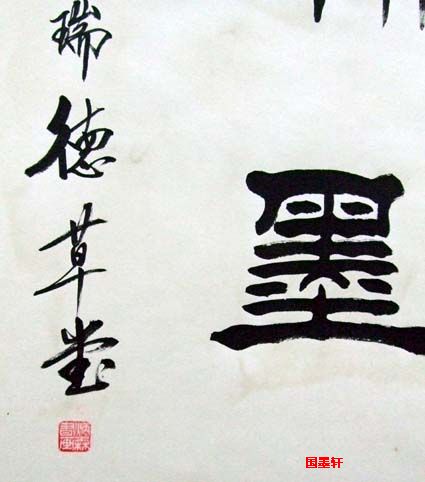 墨
瑞德草堂
国墨轩